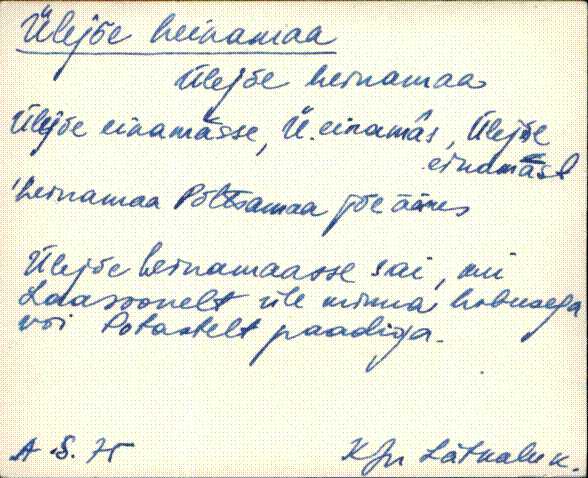 Ülejõe heinamaa
Ülejõe heinamaa
Ülejõe einamässe, Ü. einamäs, Ülejõe
einamäst
'heinamaa Põltsamaa jõe ääres
Ülejõe heinamaasse sai, mi
Laasoonelt üle minna hobusega
või Potastelt paadiga.
A. S. 75
KJn Lätkalu k.